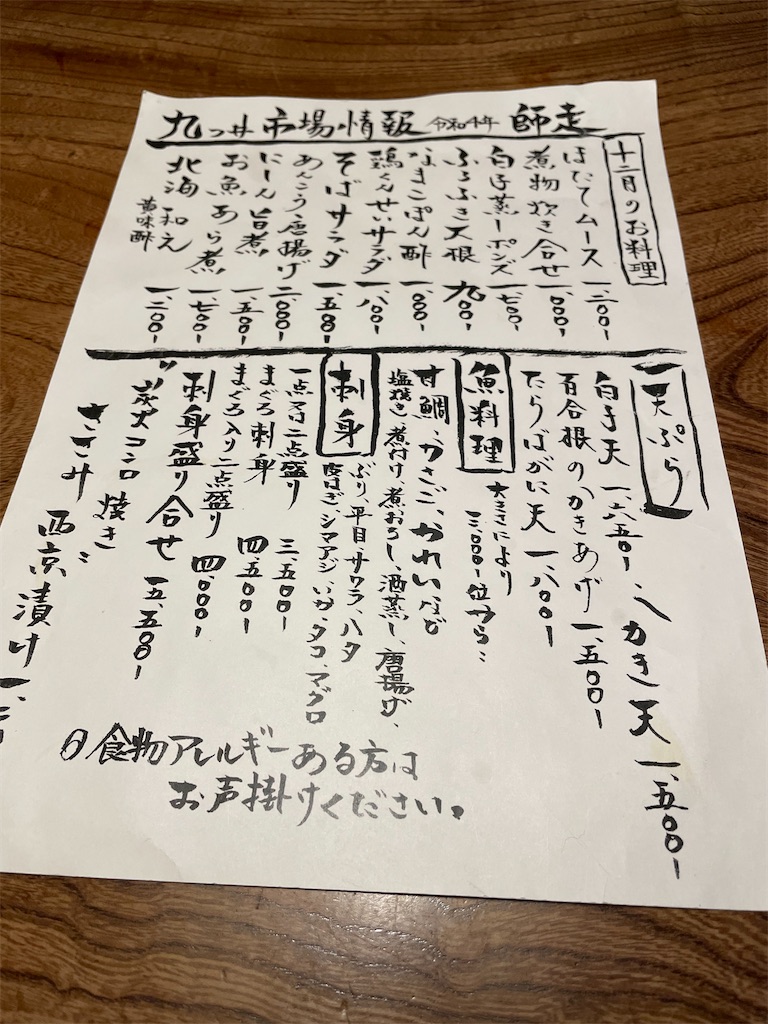 九つ井 市場情報 令和4年 師走
十二月のお料理
ほたてムース 一、二〇〇-
煮物炊き合せ 一、〇〇〇-
白子蒸しポンズ 一、七〇〇-
ふろふき大根 九〇〇-
なまこぽん酢 一、〇〇〇-
鶏くんせいサラダ 一、八〇〇-
そばサラダ 一、五〇〇-
あんこう唐揚げ 二、〇〇〇-
にしん旨煮 一、五〇〇-
お魚あら煮 一、七〇〇-
北海和え 黄味酢 一、二〇〇-
天ぷら
白子天 一、六五〇- 、かき天 一、五〇〇-
百合根のかきあげ 一、五〇〇-
たらばがに天 一、八〇〇-
魚料理 大きさにより
三、〇〇〇位から…
甘鯛、かさご、かれいなど
塩焼き、煮付け、煮おろし、酒蒸し、唐揚げ、
刺身 ぶり、平目、サワラ、ハタ
皮はぎ、シマアジ、いか、タコ、マグロ
一点又は二点盛り 三、五〇〇-
まぐろ刺身 四、五〇〇-
まぐろ入り二点盛り 四、〇〇〇-
刺身盛り合せ 五、五〇〇-
炭火コンロ焼き
さごみ西京漬け 一、二
食物アレルギーある方は
お声掛けください。